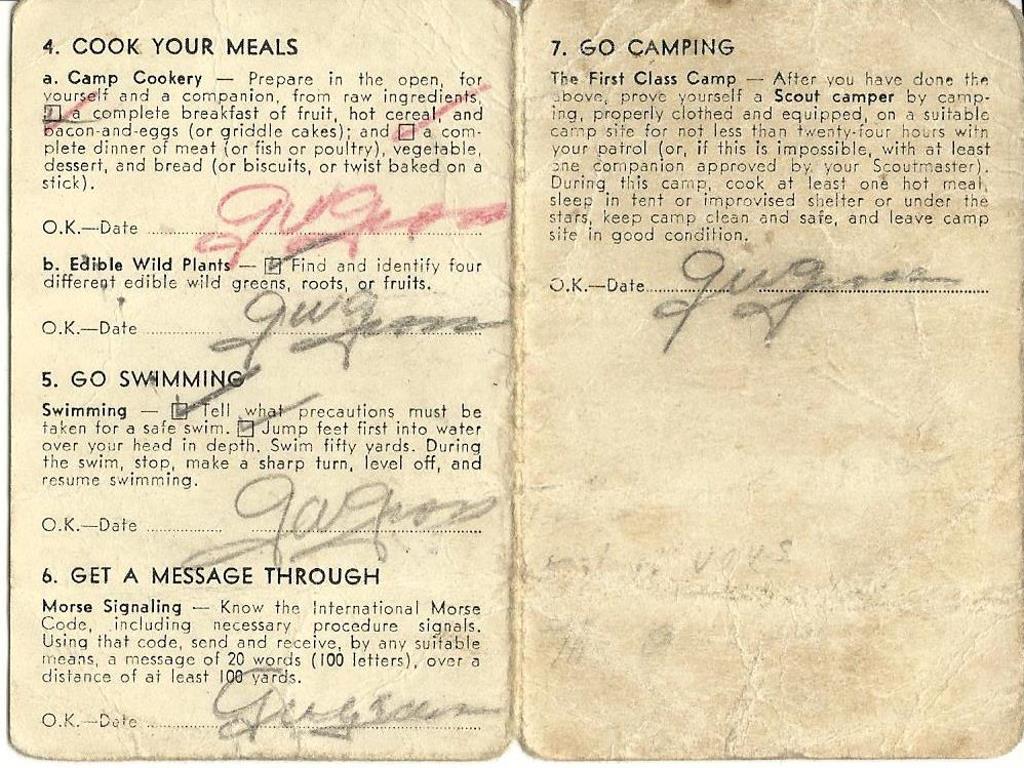 4. COOK YOUR MEALS
a. Camp Cookery — Prepare in the open, for
yourself and a companion, from raw ingredients,
a complete breakfast of fruit, hot cereal and
bacon-and-eggs (or griddle cakes); and a com-
plete dinner of meat (or fish or poultry), vegetable,
dessert, and bread (or biscuits, or twist baked on a
stick).
O.K.—Date
b. Edible Wild Plants — Find and identify four
different edible wild greens, roots, or fruits.
O.K.—Date
5. GO SWIMMING
Swimming — Tell what precautions must be
taken for a safe swim. Jump feet first into water
over your head in depth. Swim fifty yards. During
the swim, stop, make a sharp turn, level off, and
resume swimming.
O.K.—Date
6. GET A MESSAGE THROUGH
Morse Signaling — Know the International Morse
Code, including necessary procedure signals.
Using that code, send and receive, by any suitable
means, a message of 20 words (100 letters), over a
distance of at least 100 yards.
O.K.—Date
7. GO CAMPING
The First Class Camp — After you have done the
above, prove yourself a Scout camper by camp-
ing, properly clothed and equipped, on a suitable
camp site for not less than twenty-four hours with
your patrol (or, if this is impossible, with at least
one companion approved by your Scoutmaster).
During this camp, cook at least one hot meal,
sleep in tent or improvised shelter or under the
stars, keep camp clean and safe, and leave camp
site in good condition.
O.K.—Date